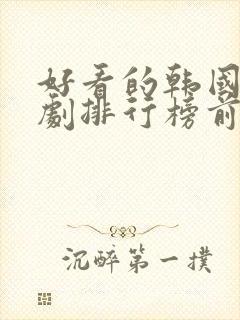 好看的韩國
劇排行榜前
沉醉第一撲